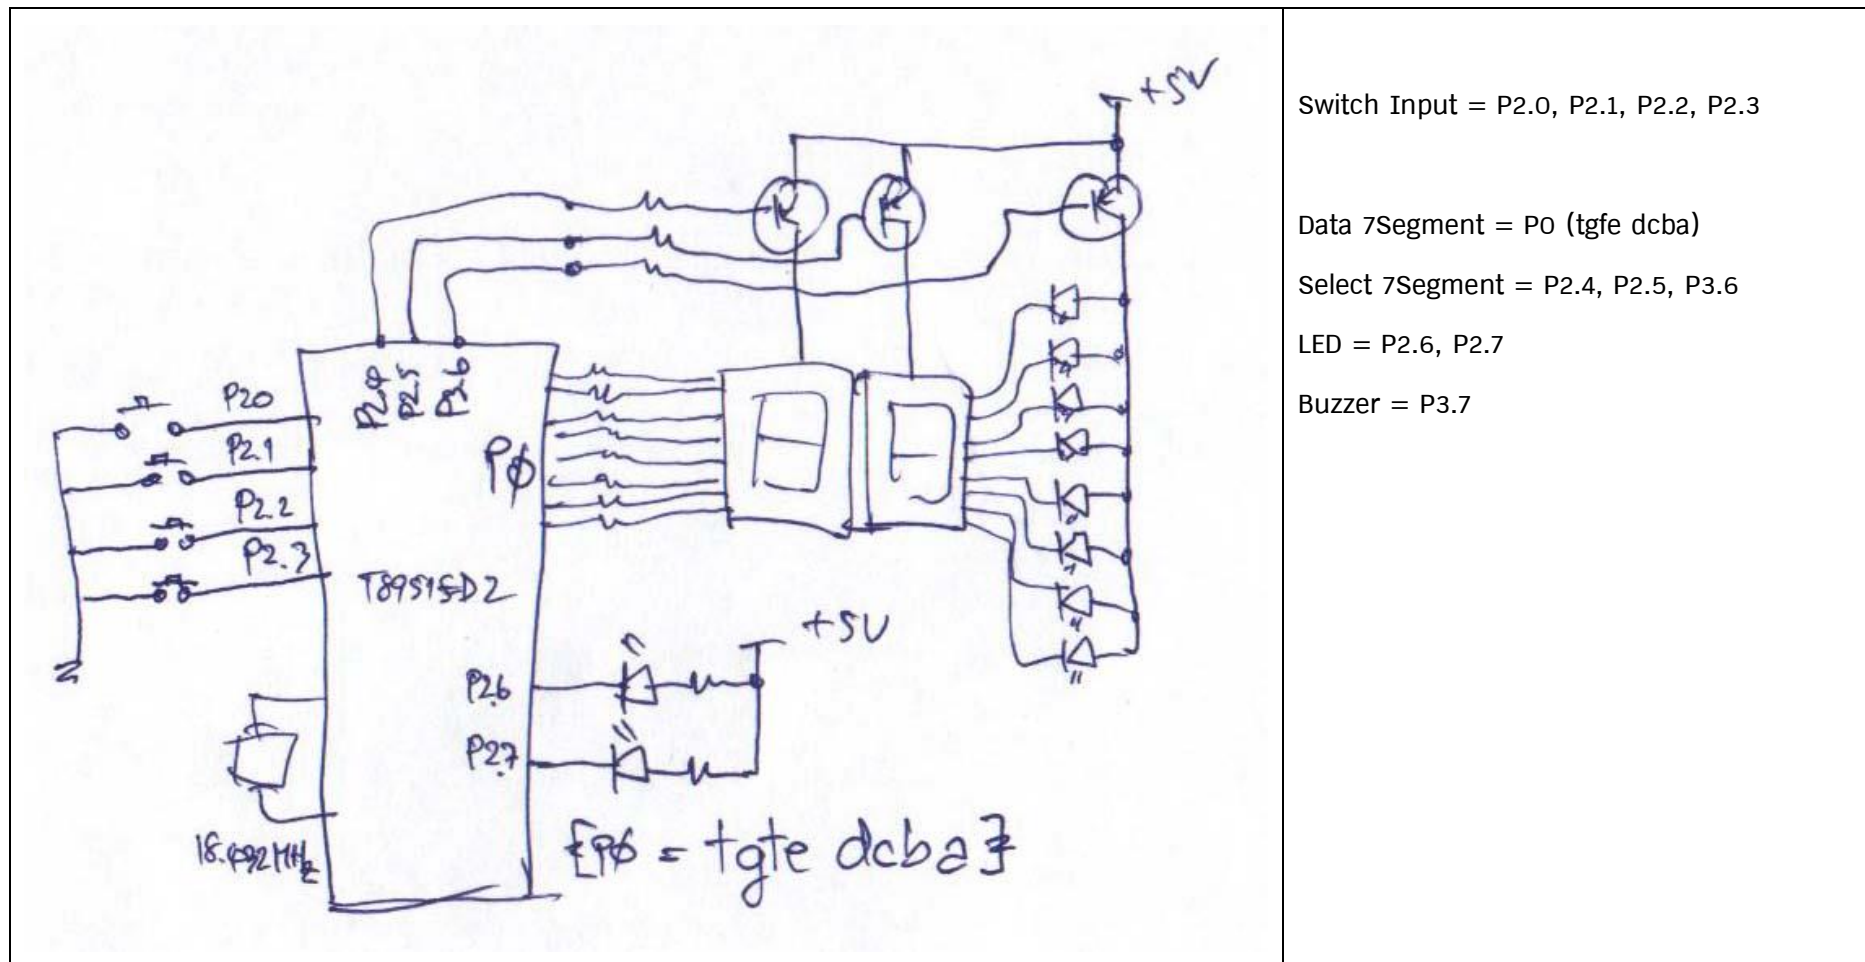 +5V
P2.4
P2.5
P3.6
P20
P2.1
P2.2
P2.3
PØ
+5V
P26
P2.7
{PØ = tgfe dcba}
Switch Input = P2.0, P2.1, P2.2, P2.3
Data 7Segment = P0 (tgfe dcba)
Select 7Segment = P2.4, P2.5, P3.6
LED = P2.6, P2.7
Buzzer = P3.7